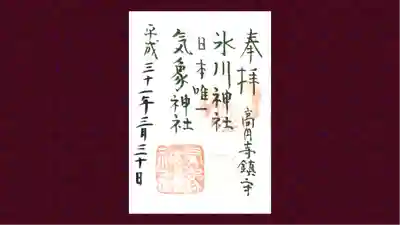 奉拝
高円寺鎮守
氷川神社
日本唯一
気象神社
平成三十一年三月三十日